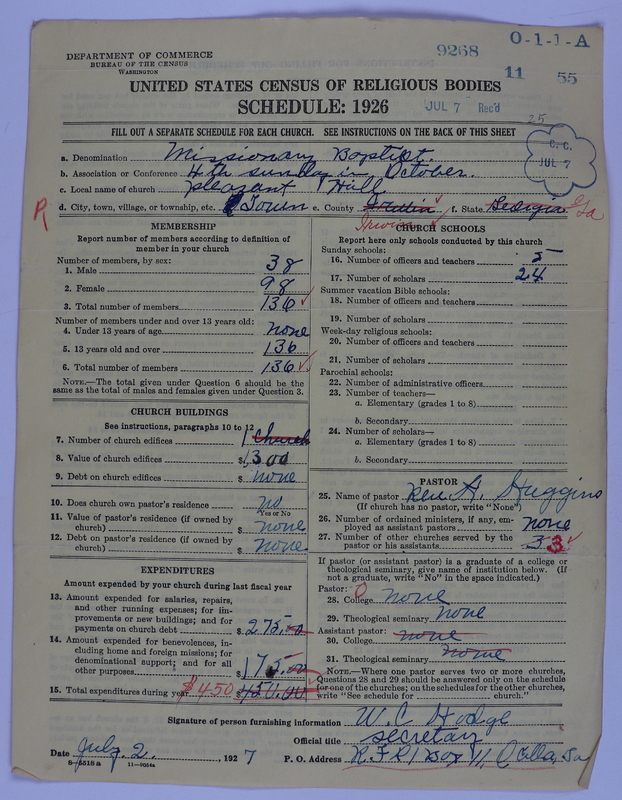 DEPARTMENT OF COMMERCE
BUREAU OF THE CENSUS
WASHINGTON
9268
0-1-1-A
11 55
UNITED STATES CENSUS OF RELIGIOUS BODIES
SCHEDULE: 1926
JUL 7 Rec'd
25
C. C.
JUL 7
FILL OUT A SEPARATE SCHEDULE FOR EACH CHURCH. SEE INSTRUCTIONS ON THE BACK OF THIS SHEET
a. Denomination Missionary Baptist.
b. Association or Conference 4th sunday in October.
c. Local name of church pleasant Hill
R d. City, town, village, or township, etc. Town e. County Irwin f. State Georgia Ga
MEMBERSHIP
Report number of members according to definition of member in your church
Number of members, by sex:
1. Male 38
2. Female 98
3. Total number of members 136
Number of members under and over 13 years old:
4. Under 13 years of age none
5. 13 years old and over 136
6. Total number of members 136
NOTE.—The total given under Question 6 should be the same as the total of males and females given under Question 3.
CHURCH BUILDINGS
See instructions, paragraphs 10 to 12
7. Number of church edifices 1 church
8. Value of church edifices $1300
9. Debt on church edifices $ none
10. Does church own pastor's residence no
Yes or No
11. Value of pastor's residence (if owned by church) $ none
12. Debt on pastor's residence (if owned by church) $ none
EXPENDITURES
Amount expended by your church during last fiscal year
13. Amount expended for salaries, repairs, and other running expenses; for improvements or new buildings; and for payments on church debt $275.00
14. Amount expended for benevolences, including home and foreign missions; for denominational support; and for all other purposes $175.00
15. Total expenditures during year $450 $450.00
CHURCH SCHOOLS
Report here only schools conducted by this church
Sunday schools:
16. Number of officers and teachers 5
17. Number of scholars 24
Summer vacation Bible schools:
18. Number of officers and teachers
19. Number of scholars
Week-day religious schools:
20. Number of officers and teachers
21. Number of scholars
Parochial schools:
22. Number of administrative officers
23. Number of teachers—
a. Elementary (grades 1 to 8)
b. Secondary
24. Number of scholars—
a. Elementary (grades 1 to 8)
b. Secondary
PASTOR
25. Name of pastor Rev. H. Huggins
(If church has no pastor, write "None")
26. Number of ordained ministers, if any, employed as assistant pastors none
27. Number of other churches served by the pastor or his assistants 3 3
If pastor (or assistant pastor) is a graduate of a college or theological seminary, give name of institution below. (If not a graduate, write "No" in the space indicated.)
Pastor: 0
28. College none
29. Theological seminary none
Assistant pastor: none
30. College
31. Theological seminary none
NOTE.—Where one pastor serves two or more churches, Questions 28 and 29 should be answered only on the schedule for one of the churches; on the schedules for the other churches, write "See schedule for church."
Signature of person furnishing information W. C. Hodge
Official title secretary
Date July. 2. , 1927
P. O. Address R.F.D. 1 Box 11 Ocilla, Ga
8-5518a 11-9054a